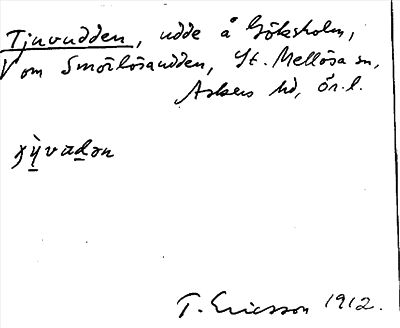 Tjuvudden, udde å Göksholm,
V om Smörlösaudden, St. Mellösa sn,
Askers hd, Ör.l.
T. Ericsson 1912.